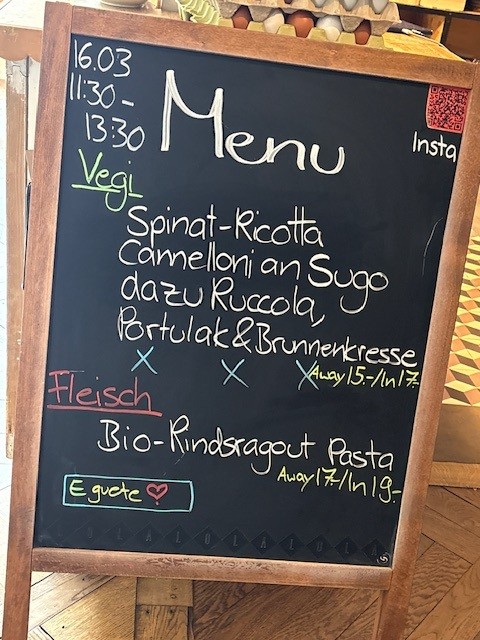 16.03
11:30 -
13:30
Menu
Insta
Vegi
Spinat-Ricotta
Cannelloni an Sugo
dazu Ruccola,
Portulak & Brunnenkresse
x x x
Away 15.-/In 17.-
Fleisch
Bio-Rindsragout Pasta
Away 17.-/In 19.-
E guete ♡